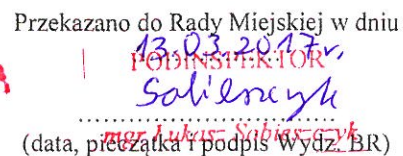 Przekazano do Rady Miejskiej w dniu
13.03.2017r.
PODINSPEKTOR
Sobieszczyk
mgr Łukasz Sobieszczyk
(data, pieczątka i podpis Wydz. BR)